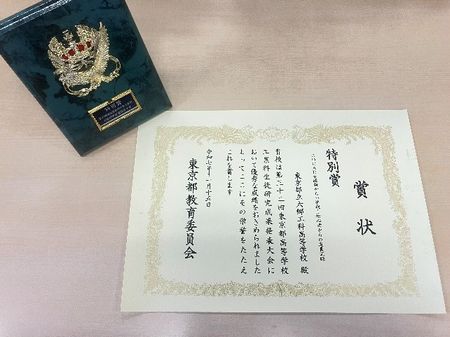 特別賞
賞状
特別賞
東京都立六郷工科高等学校 殿
貴校は第三十一回東京都高等学校
工業科生徒研究成果発表大会に
おいて優秀な成績をおさめられました
よってここにその栄誉をたたえ
これを賞します
令和七年
東京都教育委員会